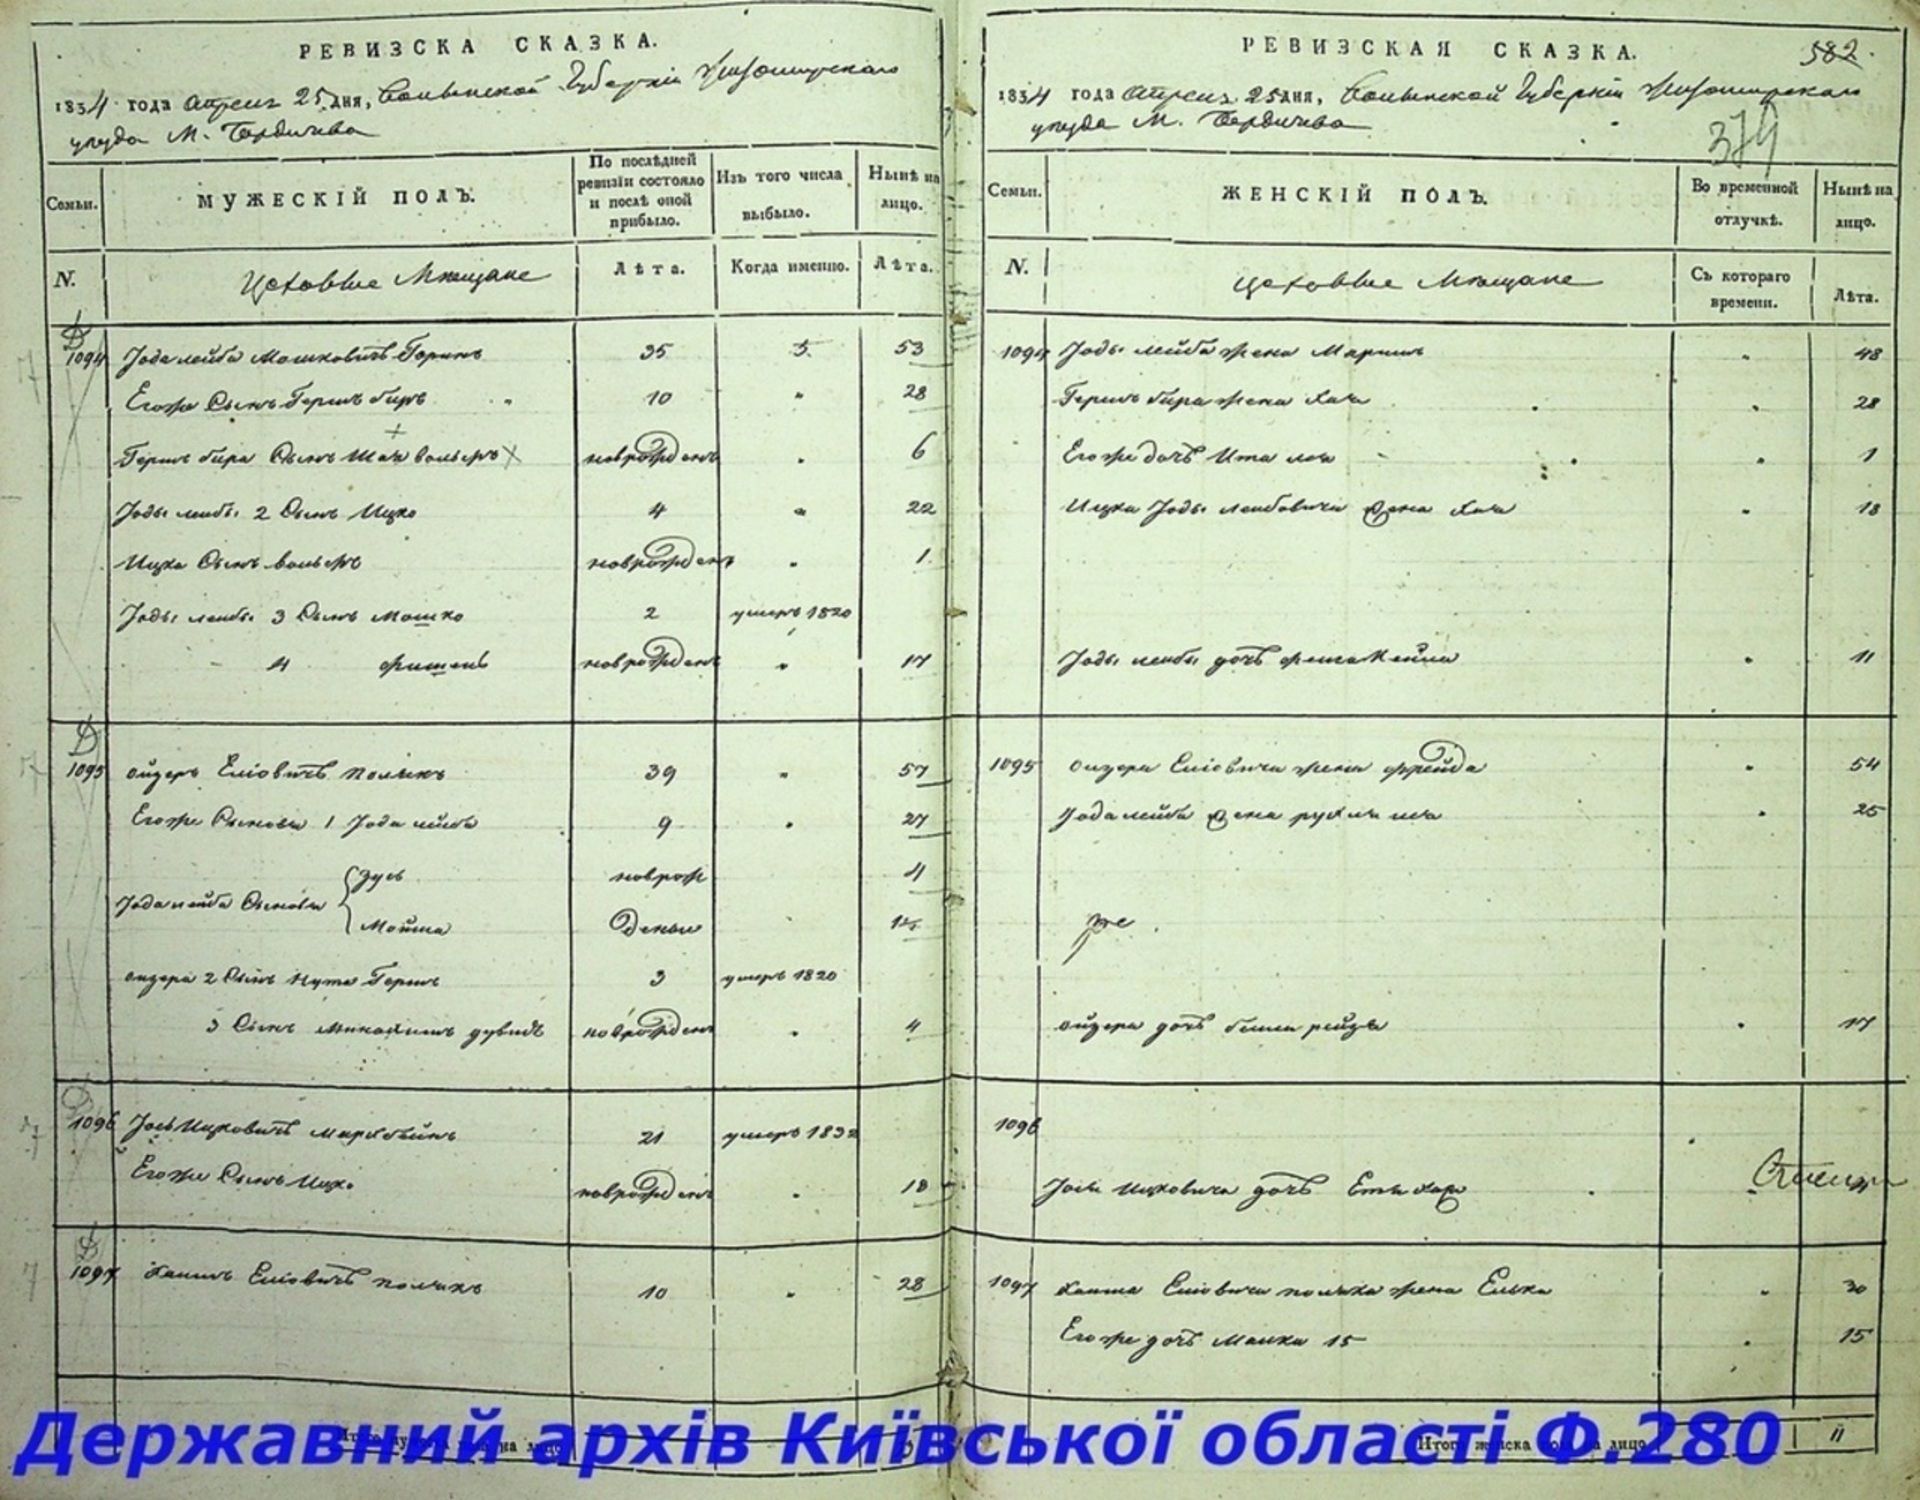 РЕВИЗСКА СКАЗКА.
1834 года Апреля 25 дня, Волынской Губернiи Житомирскаго
уезда М. Бердичева
Семьи.
МУЖЕСКIЙ ПОЛЪ.
По послѣдней ревизiи состояло и послѣ оной прибыло.
Изъ того числа выбыло.
Нынѣ на лицо.
N.
Цеховые Мещане
Лѣта.
Когда именно.
Лѣта.
1094 Иода лейба Мошковичъ 35 5 53
Егоже Сынъ Гершъ бира „ 10 „ 28
Герша бира Сынъ Вольфъ новрожденъ „ 6
Иоды лейбы 2 Сынъ Ицко 4 „ 22
Ицка Сынъ Вольфъ новрожденъ „ 1
Иоды лейбы 3 Сынъ Мошко 2 умеръ 1820
4 Фишель новрожденъ „ 17
1095 Ойзеръ Елiовичъ Полякъ 39 „ 57
Егоже Сыновья 1 Иода лейба 9 „ 27
Иода лейба Сыновья Зусь новрож 4
Мошка деные
Ойзера 2 Сынъ Нута Гершъ 3 умеръ 1820
3 Сынъ дувидъ новрожденъ „ 4
1096 Иось Ицковичъ 21 умеръ 1832
Егоже Сынъ Ицко новрожденъ „ 18
1097 Хаимъ Елiовичъ Полякъ 10 „ 28
РЕВИЗСКАЯ СКАЗКА.
582.
379
1834 года Апреля 25 дня, Волынской Губернiи Житомирскаго
уезда М. Бердичева
Семьи.
ЖЕНСКIЙ ПОЛЪ.
Во временной отлучкѣ.
Нынѣ на лицо.
N.
Цеховые Мещане
Съ котораго времени.
Лѣта.
1094 Иоды лейба жена Марьямъ „ 48
Гершъ бира жена Хая „ 28
Егоже дочь Ита лея „ 1
Ицка Иоды лейбовича жена Хая „ 18
Иоды лейбы дочь „ 11
1095 Ойзера Елiовича жена фрейда „ 54
Иода лейба жена рухля лея „ 25
Ойзера дочь рейзя „ 17
1096
Иося Ицковича дочь
1097 Хаима Елiовича поляка жена Елька „ 30
Егоже дочь Малка 15 „ 15
Итого женска пола на лицо 11
Державний архів Київської області Ф.280